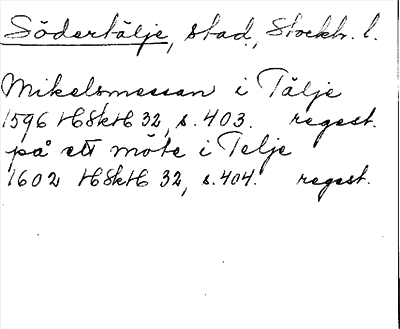 Södertälje, stad, Stockh. l.
Mikelsmessan i Tälje
1596 HSkH 32, s. 403. regest.
på ett möte i Telje
1602 HSkH 32, s. 404. regest.